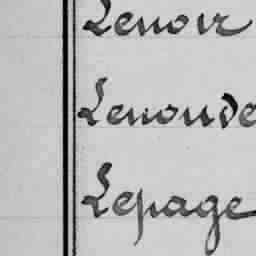 Lenoir
Lenouve
Lepage